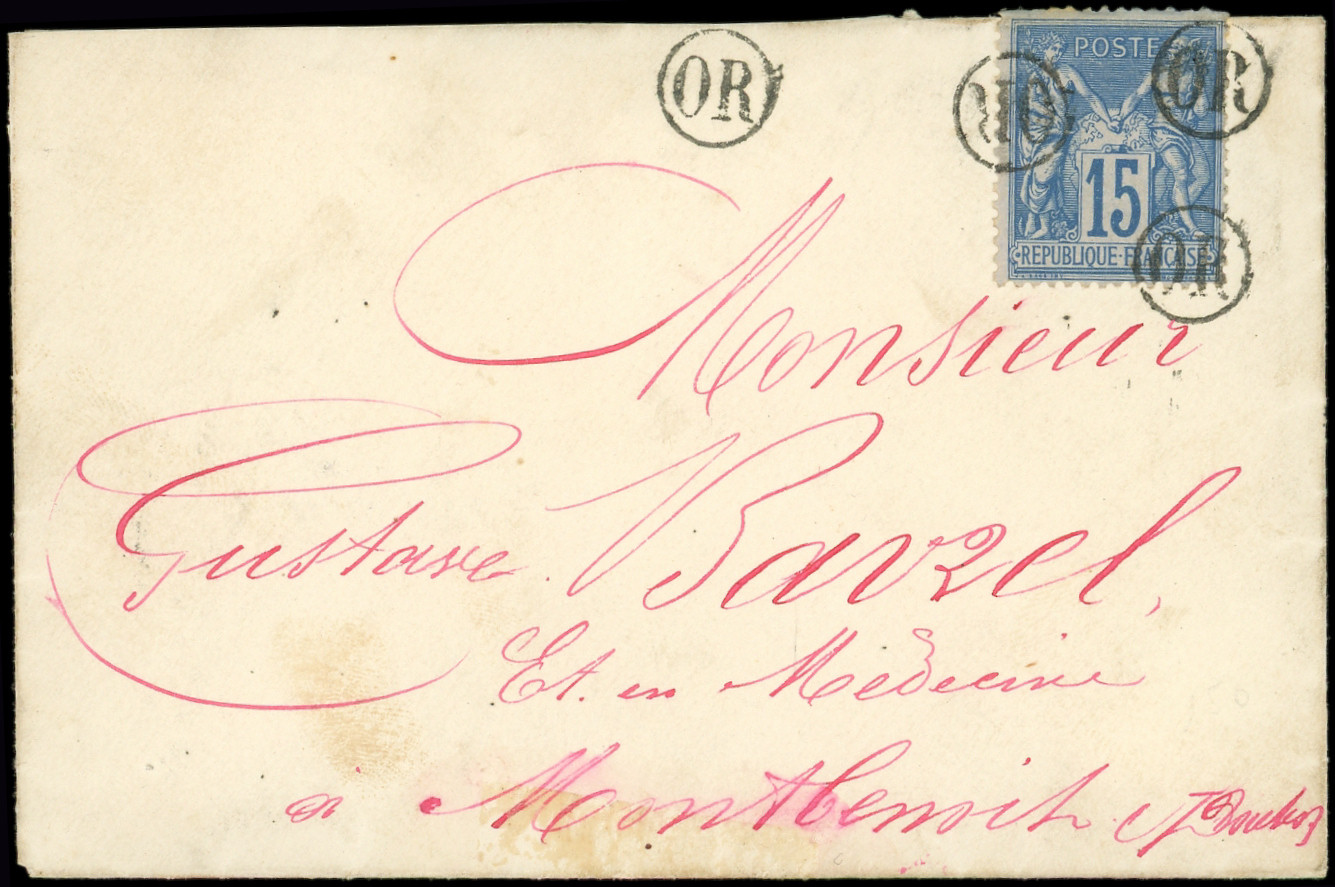 OR
POSTE
OR
OR
15
REPUBLIQUE FRANÇAISE
OR
Monsieur
Gustave Bavzel,
Et. en Médecine
à Montbenoit (Doubs)